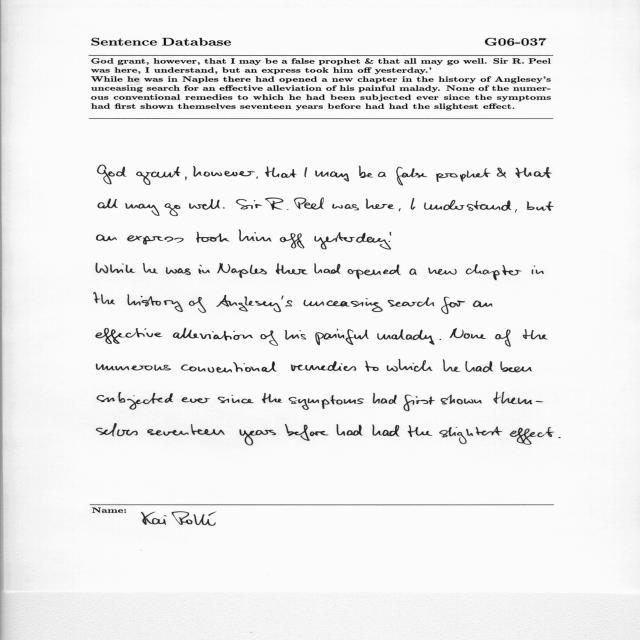 Sentence Database G06-037
God grant, however, that I may be a false prophet & that all may go well. Sir R. Peel
was here, I understand, but an express took him off yesterday.'
While he was in Naples there had opened a new chapter in the history of Anglesey's
unceasing search for an effective alleviation of his painful malady. None of the numer-
ous conventional remedies to which he had been subjected ever since the symptoms
had first shown themselves seventeen years before had had the slightest effect.
God grant, however, that I may be a false prophet & that
all may go well. Sir R. Peel was here, I understand, but
an express took him off yesterday.'
While he was in Naples there had opened a new chapter in
the history of Anglesey's unceasing search for an
effective alleviation of his painful malady. None of the
numerous conventional remedies to which he had been
subjected ever since the symptoms had first shown them-
selves seventeen years before had had the slightest effect.
Name: Kai